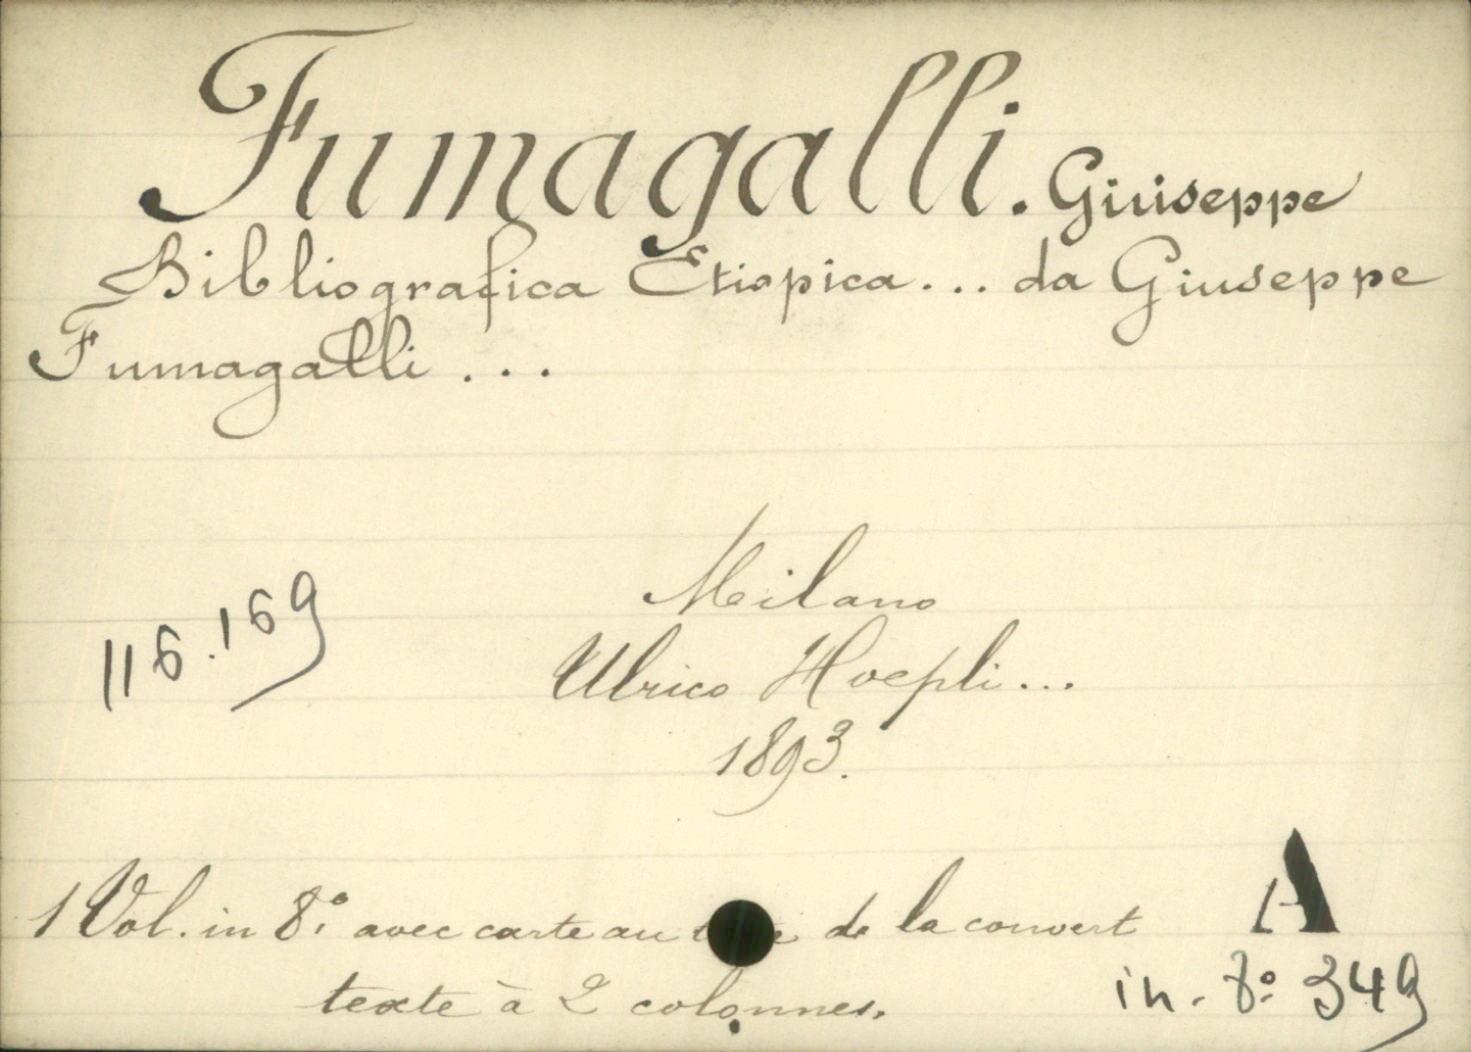 Fumagalli. Giuiseppe
Bibliografica Etiopica... da Giuseppe
Fumagalli ...
Milano
116.169
Ulrico Hoepli...
1893.
1 Vol. in 8.° avec carte au de la couvert
texte à 2 colonnes.
A
in-8.° 349